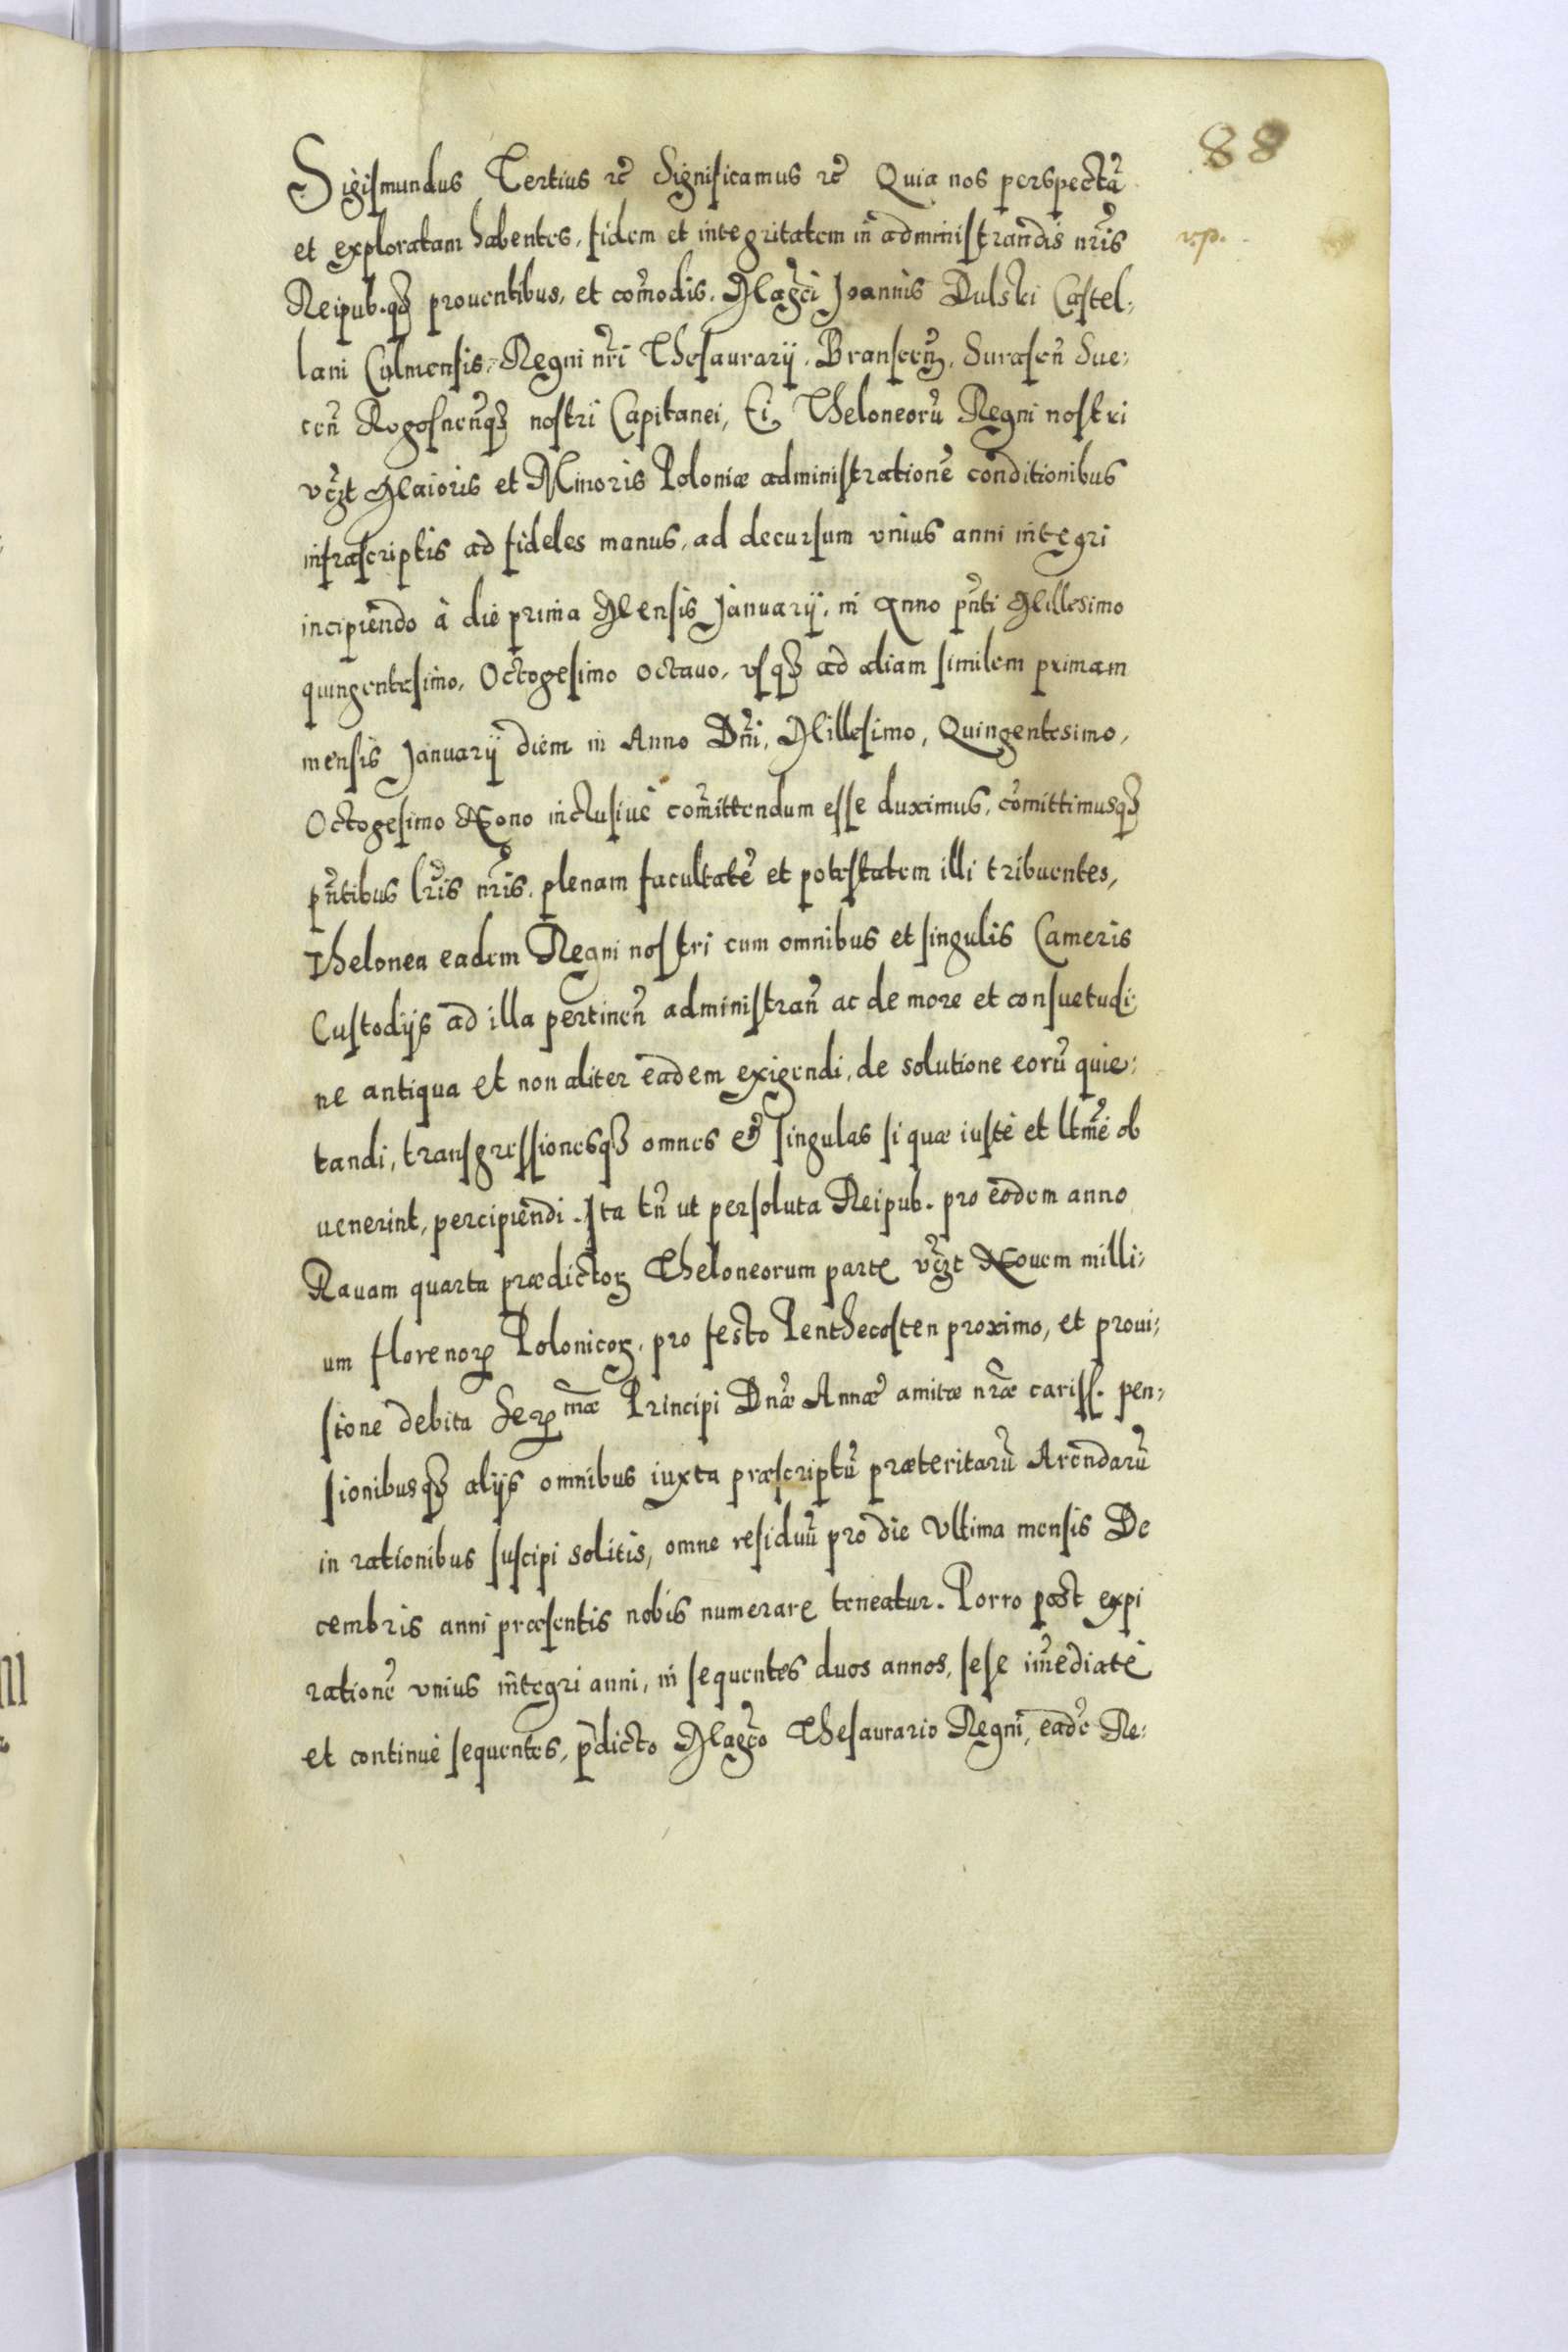 88
Sigismundus Tertius rc̃ Significamus rc̃ Quia nos perspectã
et exploratam habentes, fidem et integritatem in administrandis nr̃is
Reipub.q₃ prouentibus, et com̃odis, Mag̃ci Joannis Dulski Castel:
lani Culmensis, Regni nr̃i Thesaurarij, Branscen̄, Surasen̄ Sue:
cen̄ Rogosnen̄q₃ nostri Capitanei, Ei, Theloneorũ Regni nostri
vc̃zt Maioris et Minoris Poloniæ administrationẽ conditionibus
infrascriptis ad fideles manus, ad decursum vnius anni integri
incipiendo à die prima Mensis Januarij, in Anno pñti Millesimo
quingentesimo, Octogesimo octauo, vsq₃ ad aliam similem primam
mensis Januarij diem in Anno Dñi, Millesimo, Quingentesimo,
Octogesimo Nono inclusiuè com̃ittendum esse duximus, com̃ittimusq₃
pñtibus lr̃is nr̃is, plenam facultatẽ et potestatem illi tribuentes,
Thelonea eadem Regni nostri cum omnibus et singulis Cameris
Custodijs ad illa pertinen̄ administran̄ ac de more et consuetudi:
ne antiqua et non aliter eadem exigendi, de solutione eorũ quie:
tandi, transgressionesq₃ omnes et singulas si quæ iustè et ltm̃è ob
uenerint, percipiendi. Ita tñ ut persoluta Reipub. pro eodem anno
Rauam quarta prædictoꝝ Theloneorum parte vc̃zt Nouem milli:
um florenoꝝ Polonicoꝝ, pro festo Penthecosten proximo, et proui:
sione debita Serᵐæ Principi Dñæ Annæ amitæ nr̃æ cariss. pen:
sionibusq₃ alijs omnibus iuxta præscriptũ præteritarũ Arendarũ
in rationibus suscipi solitis, omne residuũ pro die Vltima mensis De
cembris anni præsentis nobis numerare teneatur. Porro post expi
rationẽ vnius integri anni, in sequentes duos annos, sese im̃ediatè
et continuè sequentes, p̄dicto Mag̃co Thesaurario Regni, eadẽ Re: